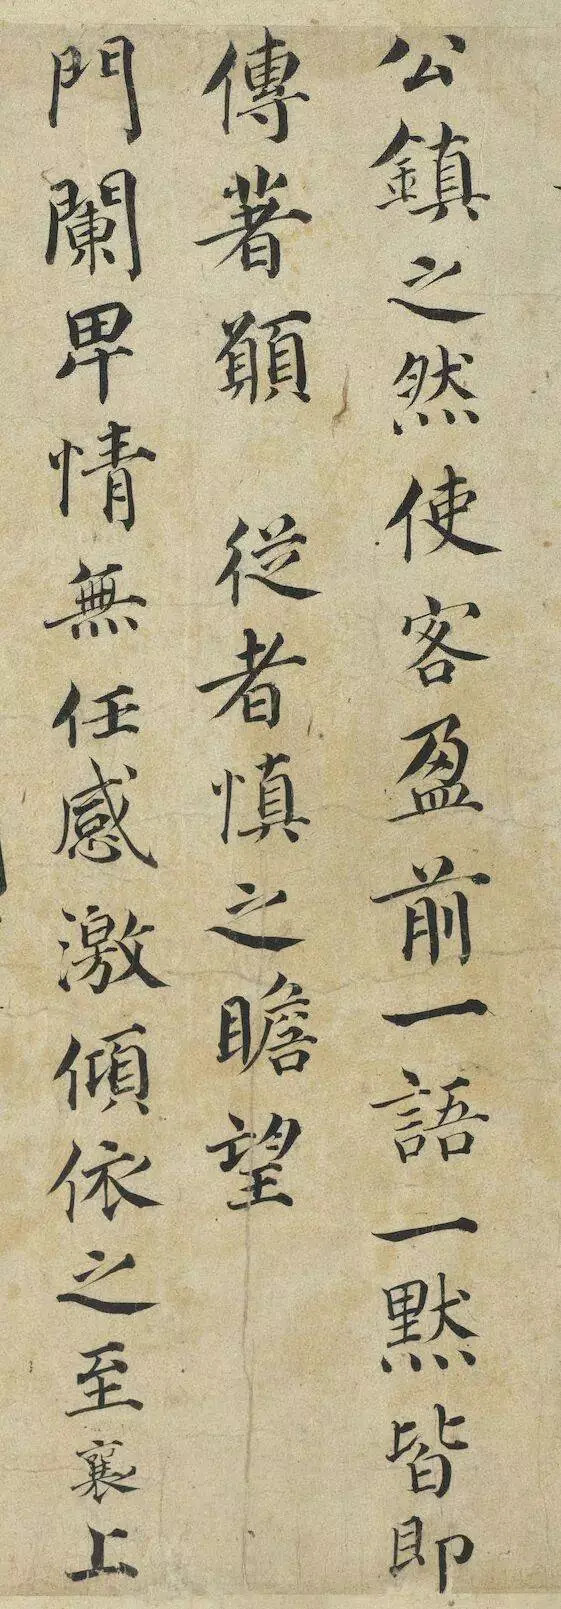 公鎮之然使客盈前一語一默皆即
傳著願　從者慎之瞻望
門闌卑情無任感激傾依之至襄上